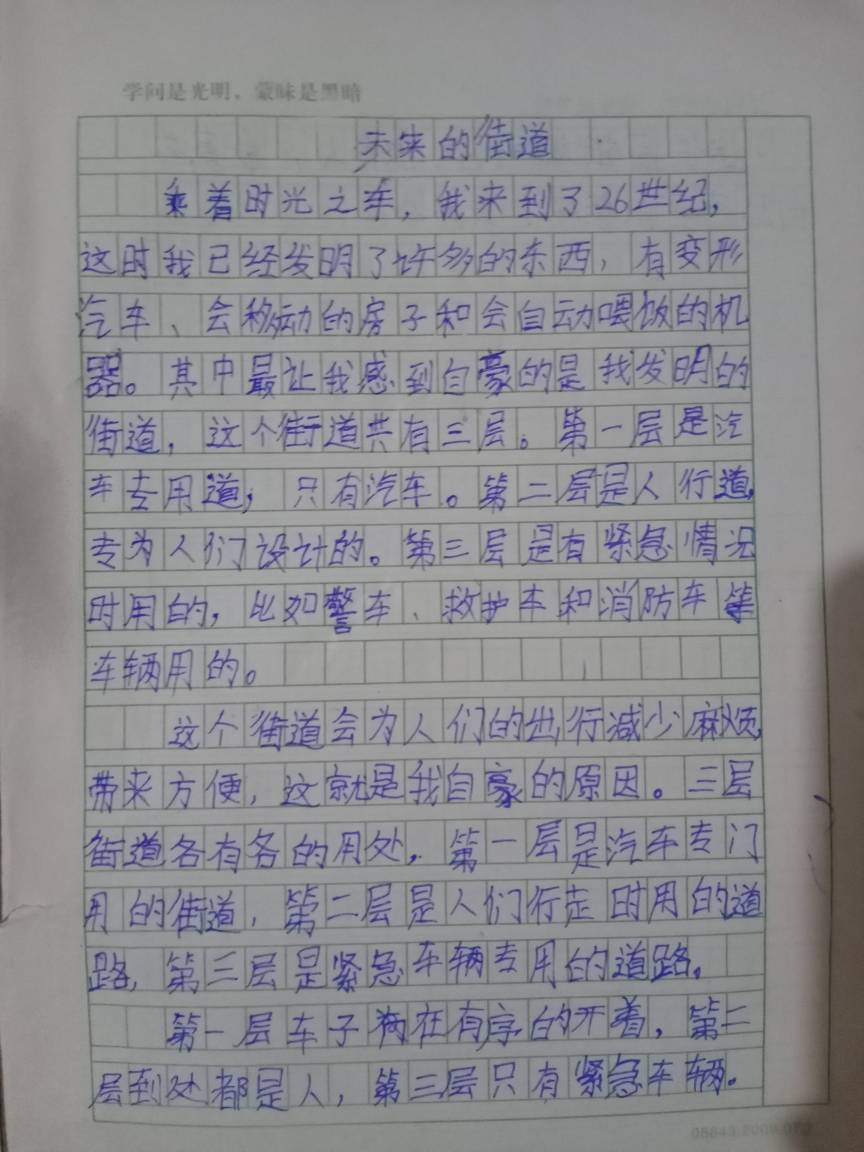 学问是光明，蒙昧是黑暗
未来的街道
乘着时光之车，我来到了26世纪，
这时我已经发明了许多的东西，有变形
汽车、会移动的房子和会自动喂饭的机
器。其中最让我感到自豪的是我发明的
街道，这个街道共有三层。第一层是汽
车专用道，只有汽车。第二层是人行道，
专为人们设计的。第三层是有紧急情况
时用的，比如警车、救护车和消防车等
车辆用的。
这个街道会为人们的出行减少麻烦，
带来方便，这就是我自豪的原因。三层
街道各有各的用处，第一层是汽车专门
用的街道，第二层是人们行走时用的道
路，第三层是紧急车辆专用的道路。
第一层车子在有序的开着，第二
层到处都是人，第三层只有紧急车辆。